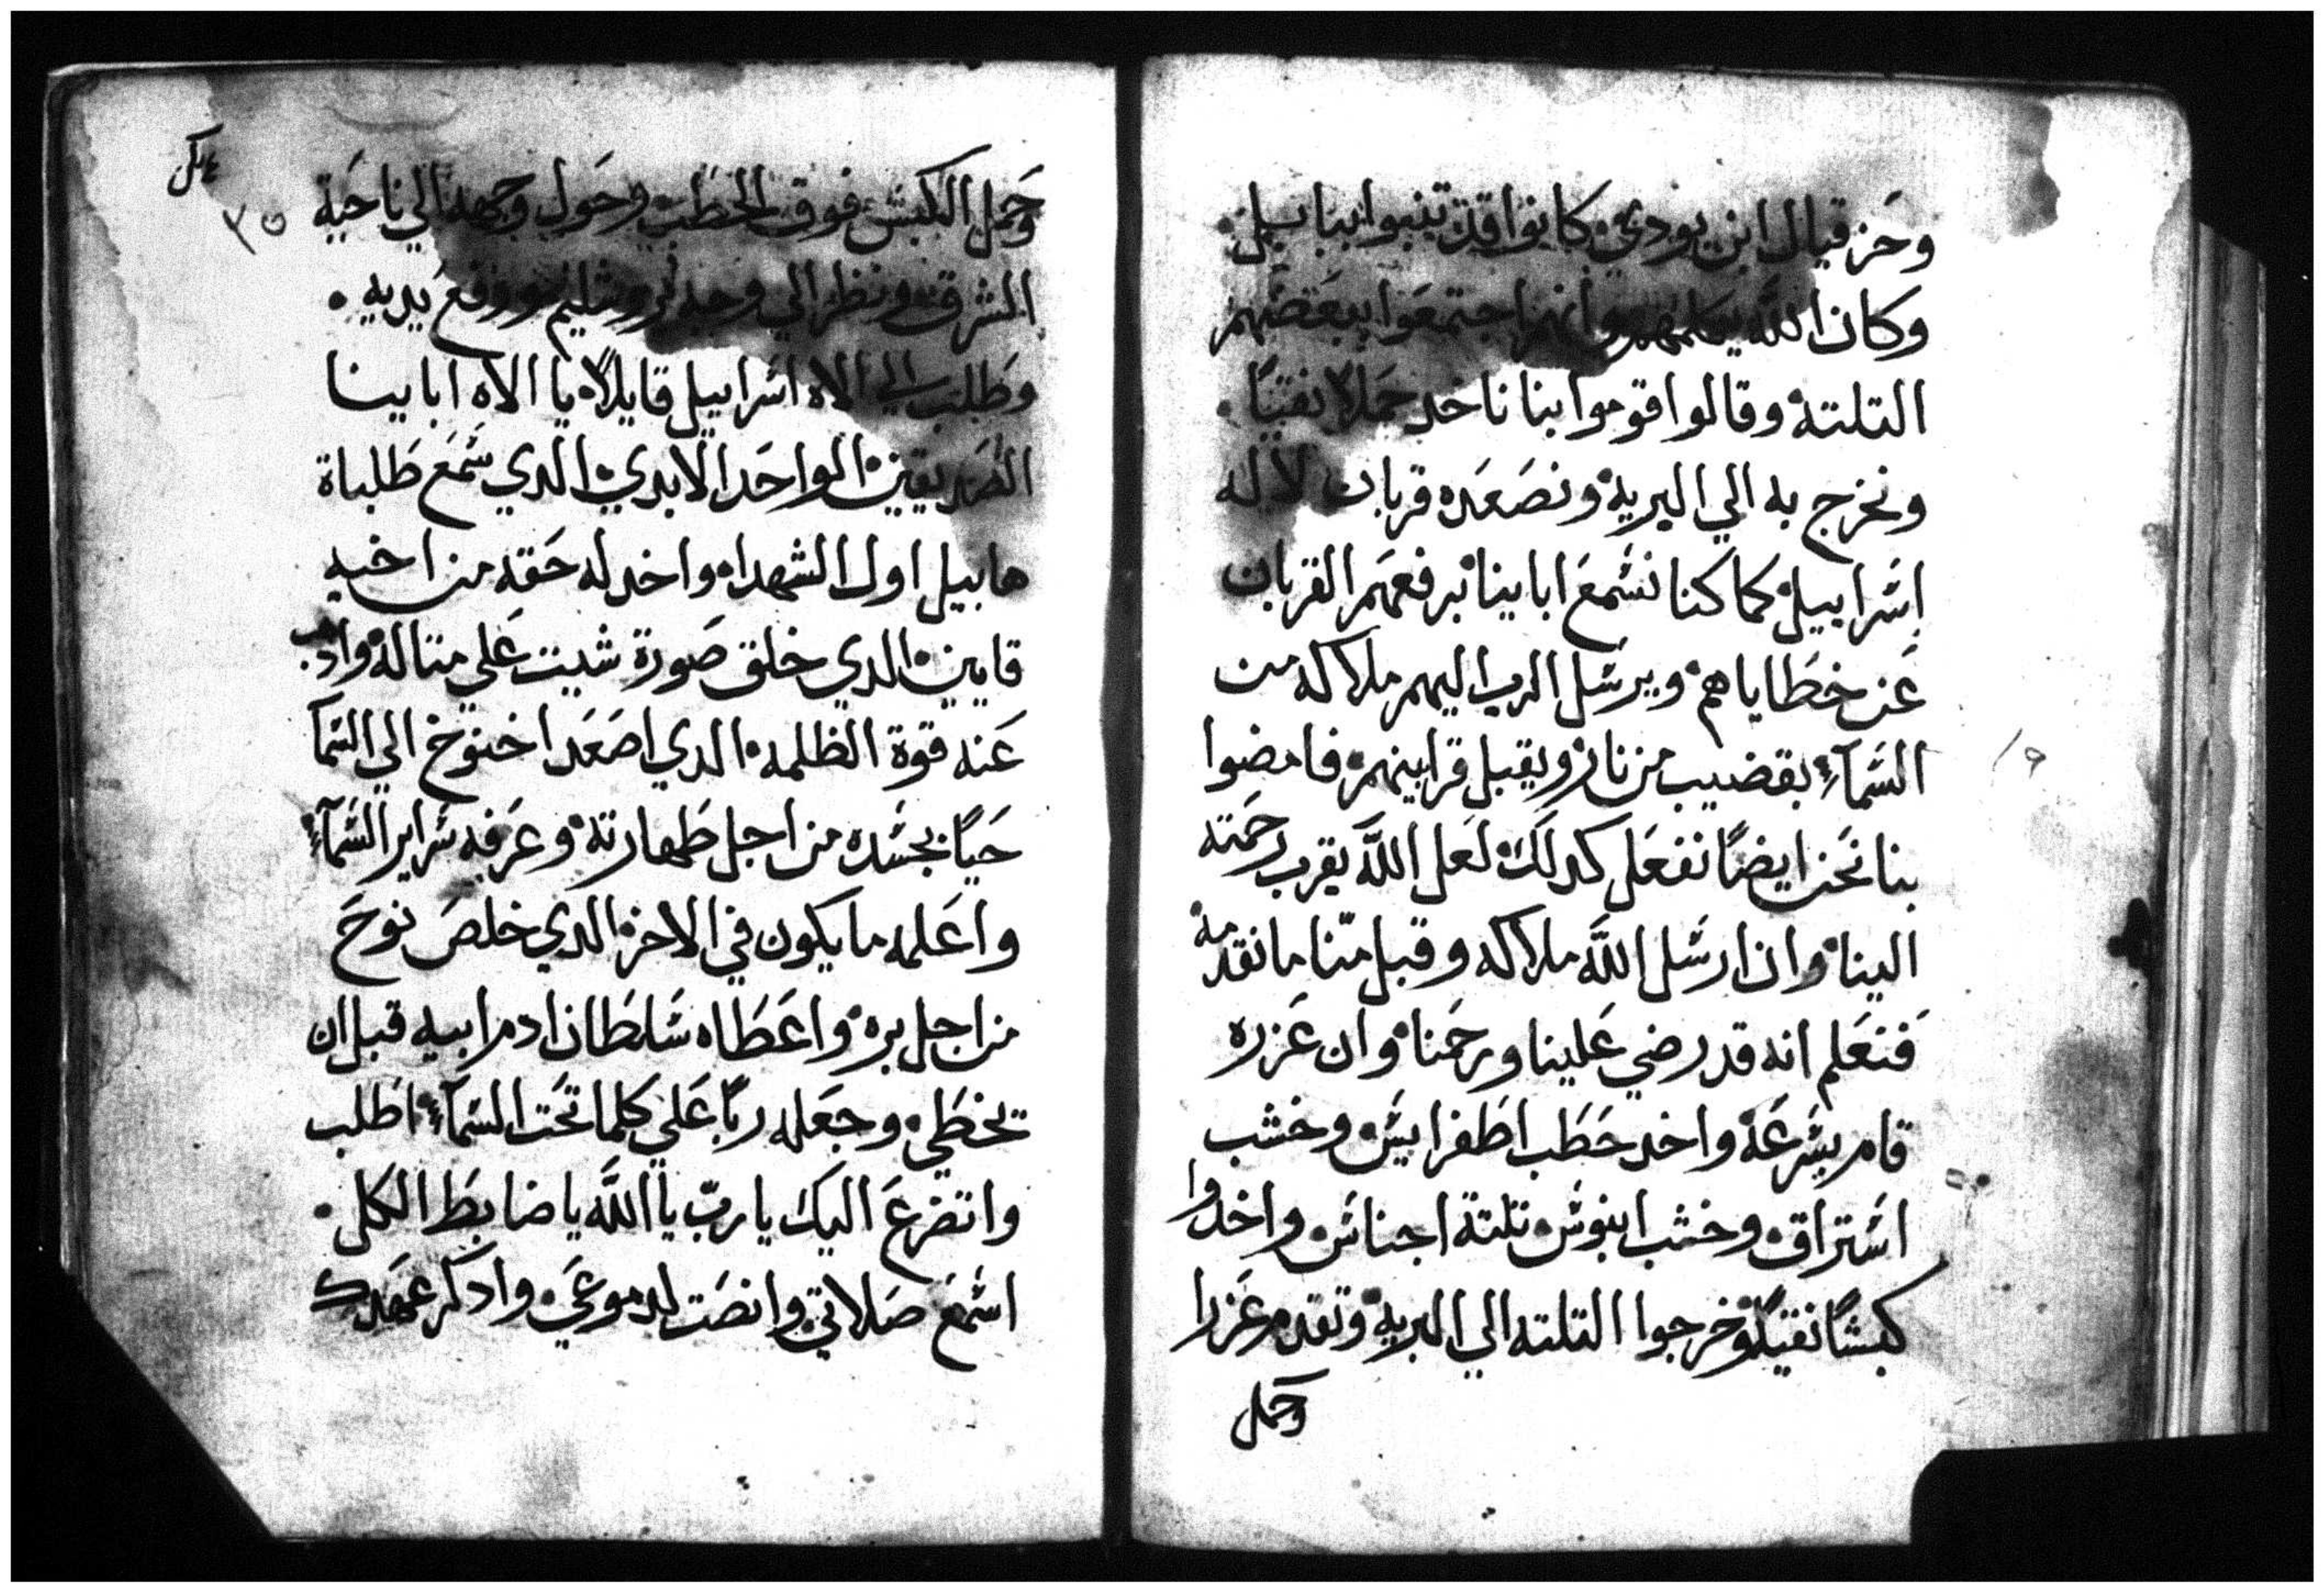 وحزقيال ابن بودي كانوا قد تنبوا ببابيل
وكان الله يكلمهم وانهم اجتمعوا ببعضهم
التلتة وقالوا قوموا بنا ناخد حملا نقيًا
ونخرج به الي البرية ونصعده قربان لاله
اسراييل كما كنا نسمع ابايينا برفعهم القربان
عن خطاياهم ويرسل الرب اليهم ملاكه من
السمآء بقضيب من نار ويقبل قرابينهم فامضوا
بنا نحن ايضًا نفعل كدلك لعل الله يقرب رحمته
الينا وان ارسل الله ملاكه وقبل منّا ما نقدمه
فنعلم انه قد رضي علينا ورحمنا وان عزره
قام بسرعة واخد حطب اطفرابيس وخشب
استراق وخشب ابنوس تلتة اجناس واخدوا
كبشًا نقيًا وخرجوا التلته الي البرية وتقدم عزرا
وحمل
٣٥
وحمل الكبش فوق الحطب وحول وجهه الي ناحية
الشرق ونظر الي وجه يروشليم ورفع يديه
وطلب الي الاه اسراييل قايلًا يا الاه ابايينا
الصديقين الواحد الابدي الدي سمع طلباة
هابيل اول الشهدا واخد له حقه من اخيه
قايين الدي خلق صورة شيت علي متاله وادهب
عنه قوة الظلمه الدي اصعد اخنوخ الي السمآ
حيًا بجسده من اجل طهارته وعرفه سراير السمآء
واعلمه ما يكون في الاخر الدي خلص نوح
من اجل بره واعطاه سلطان ادم ابيه قبل ان
يخطي وجعله ربًا علي كلما تحت السمآء اطلب
واتضرع اليك يا ربّ يا الله يا ضابط الكل
اسمع صلاتي وانصت لدموعي وادكر عهدك